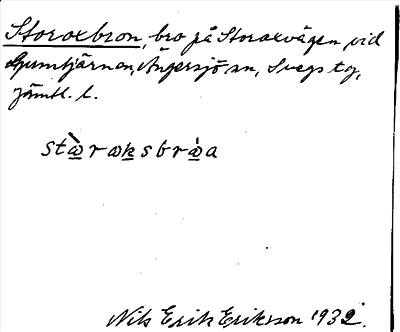 Storoxbron, bro på Storoxvägen vid
Ljusmtjärnen, Ängersjö sn, Svegs tg,
Jämtl. l.
stὼrωksbrὼa
Nils Erik Eriksson 1932.